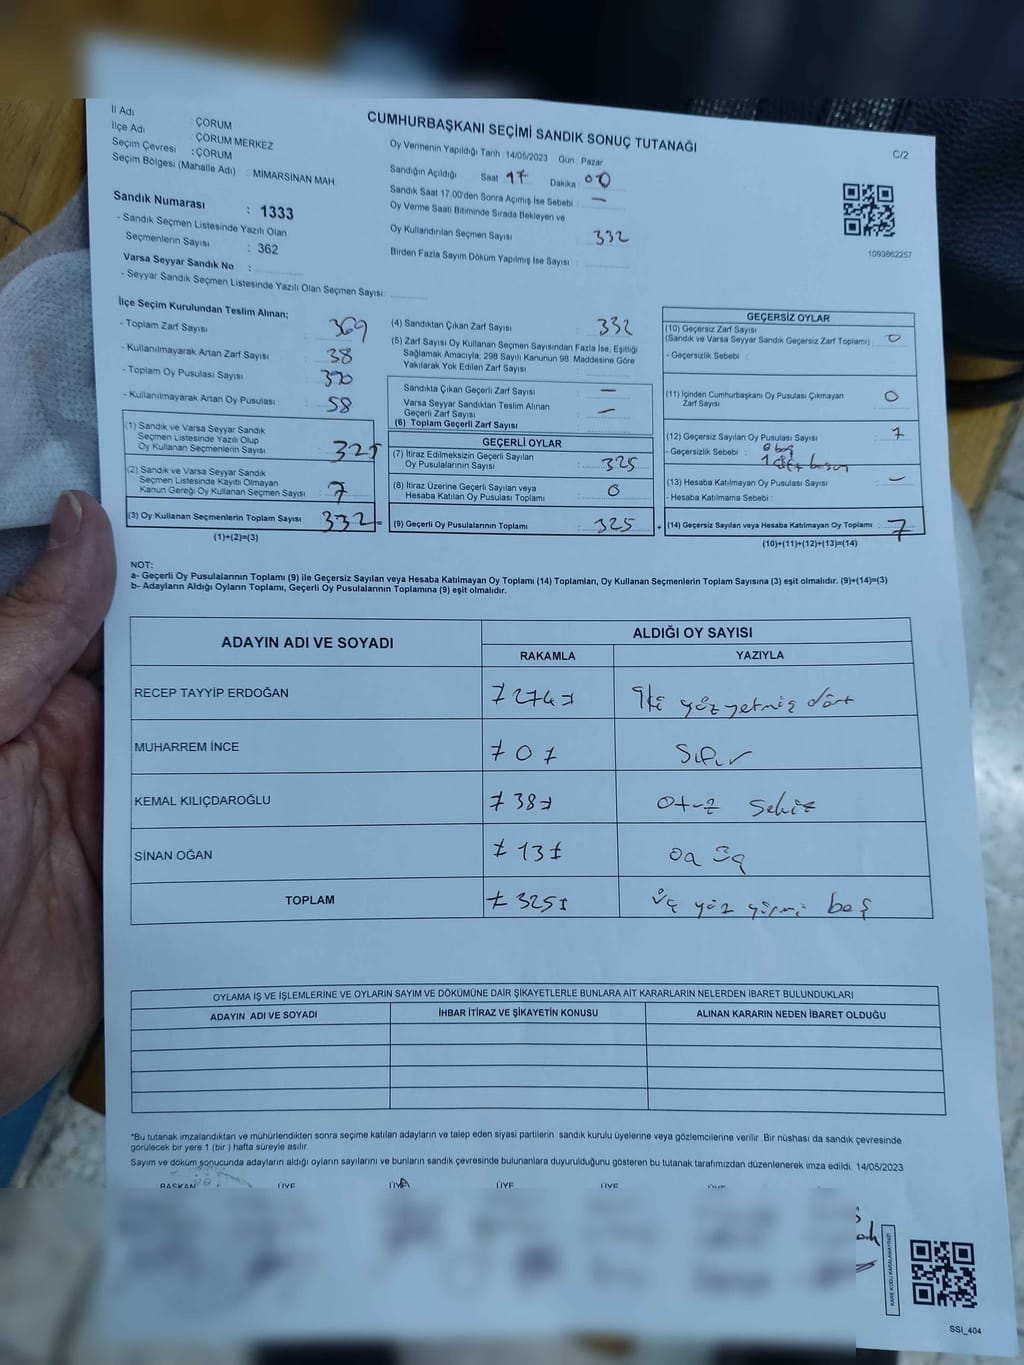 CUMHURBAŞKANI SEÇİMİ SANDIK SONUÇ TUTANAĞI
C/2
İl Adı : ÇORUM
İlçe Adı : ÇORUM MERKEZ
Seçim Çevresi : ÇORUM
Seçim Bölgesi (Mahalle Adı) : MİMARSİNAN MAH.
Sandık Numarası : 1333
- Sandık Seçmen Listesinde Yazılı Olan
Seçmenlerin Sayısı : 362
Varsa Seyyar Sandık No :
- Seyyar Sandık Seçmen Listesinde Yazılı Olan Seçmen Sayısı:
Oy Vermenin Yapıldığı Tarih :14/05/2023 Gün : Pazar
Sandığın Açıldığı Saat 17 Dakika : 00
Sandık Saat 17:00'den Sonra Açımış İse Sebebi : —
Oy Verme Saati Bitiminde Sırada Bekleyen ve
Oy Kullandırılan Seçmen Sayısı : 332
Birden Fazla Sayım Döküm Yapılmış İse Sayısı :
1093862257
İlçe Seçim Kurulundan Teslim Alınan;
- Toplam Zarf Sayısı : 369
- Kullanılmayarak Artan Zarf Sayısı : 38
- Toplam Oy Pusulası Sayısı : 390
- Kullanılmayarak Artan Oy Pusulası : 58
(1) Sandık ve Varsa Seyyar Sandık
Seçmen Listesinde Yazılı Olup
Oy Kullanan Seçmenlerin Sayısı : 325
(2) Sandık ve Varsa Seyyar Sandık
Seçmen Listesinde Kayıtlı Olmayan
Kanun Gereği Oy Kullanan Seçmen Sayısı : 7
(3) Oy Kullanan Seçmenlerin Toplam Sayısı : 332
(1)+(2)=(3)
(4) Sandıktan Çıkan Zarf Sayısı : 332
(5) Zarf Sayısı Oy Kullanan Seçmen Sayısından Fazla İse, Eşitliği
Sağlamak Amacıyla, 298 Sayılı Kanunun 98. Maddesine Göre
Yakılarak Yok Edilen Zarf Sayısı :
Sandıkta Çıkan Geçerli Zarf Sayısı : —
Varsa Seyyar Sandıktan Teslim Alınan
Geçerli Zarf Sayısı : —
(6) Toplam Geçerli Zarf Sayısı :
GEÇERLİ OYLAR
(7) İtiraz Edilmeksizin Geçerli Sayılan
Oy Pusulalarının Sayısı : 325
(8) İtiraz Üzerine Geçerli Sayılan veya
Hesaba Katılan Oy Pusulası Toplamı : 0
(9) Geçerli Oy Pusulalarının Toplamı : 325 +
GEÇERSİZ OYLAR
(10) Geçersiz Zarf Sayısı
(Sandık ve Varsa Seyyar Sandık Geçersiz Zarf Toplamı) : 0
- Geçersizlik Sebebi :
(11) İçinden Cumhurbaşkanı Oy Pusulası Çıkmayan
Zarf Sayısı : 0
(12) Geçersiz Sayılan Oy Pusulası Sayısı : 7
- Geçersizlik Sebebi : 6 boş
1 çift basım
(13) Hesaba Katılmayan Oy Pusulası Sayısı : —
- Hesaba Katılmama Sebebi :
(14) Geçersiz Sayılan veya Hesaba Katılmayan Oy Toplamı : 7
(10)+(11)+(12)+(13)=(14)
NOT:
a- Geçerli Oy Pusulalarının Toplamı (9) ile Geçersiz Sayılan veya Hesaba Katılmayan Oy Toplamı (14) Toplamları, Oy Kullanan Seçmenlerin Toplam Sayısına (3) eşit olmalıdır. (9)+(14)=(3)
b- Adayların Aldığı Oyların Toplamı, Geçerli Oy Pusulalarının Toplamına (9) eşit olmalıdır.
ADAYIN ADI VE SOYADI ALDIĞI OY SAYISI
RAKAMLA YAZIYLA
RECEP TAYYİP ERDOĞAN 274 İki yüz yetmiş dört
MUHARREM İNCE 0 Sıfır
KEMAL KILIÇDAROĞLU 38 Otuz sekiz
SİNAN OĞAN 13 On üç
TOPLAM 325 üç yüz yirmi beş
OYLAMA İŞ VE İŞLEMLERİNE VE OYLARIN SAYIM VE DÖKÜMÜNE DAİR ŞİKAYETLERLE BUNLARA AİT KARARLARIN NELERDEN İBARET BULUNDUKLARI
ADAYIN ADI VE SOYADI İHBAR İTİRAZ VE ŞİKAYETİN KONUSU ALINAN KARARIN NEDEN İBARET OLDUĞU
*Bu tutanak imzalandıktan ve mühürlendikten sonra seçime katılan adayların ve talep eden siyasi partilerin sandık kurulu üyelerine veya gözlemcilerine verilir .Bir nüshası da sandık çevresinde
görülecek bir yere 1 (bir ) hafta süreyle asılır.
Sayım ve döküm sonucunda adayların aldığı oyların sayılarını ve bunların sandık çevresinde bulunanlara duyurulduğunu gösteren bu tutanak tarafımızdan düzenlenerek imza edildi. 14/05/2023
BAŞKAN ÜYE ÜYE ÜYE ÜYE
KARE KODU KARALAMAYINIZ!
SSI_404